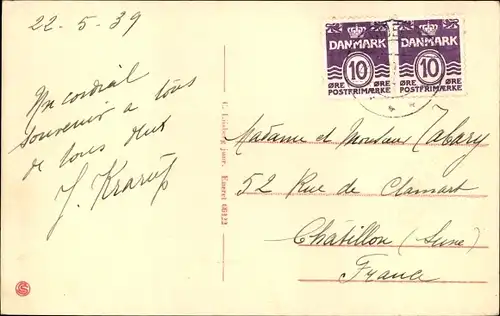 22-5-39
Un cordial
souvenir a tous
de tous deux
J. Krarup
C. Løisberg junr. Eneret 66123
DANMARK
10
ØRE ØRE
POSTFRIMÆRKE
DANMARK
10
ØRE ØRE
POSTFRIMÆRKE
Madame et Monsieur Tabary
52 Rue de Clamart
Châtillon (Seine)
France